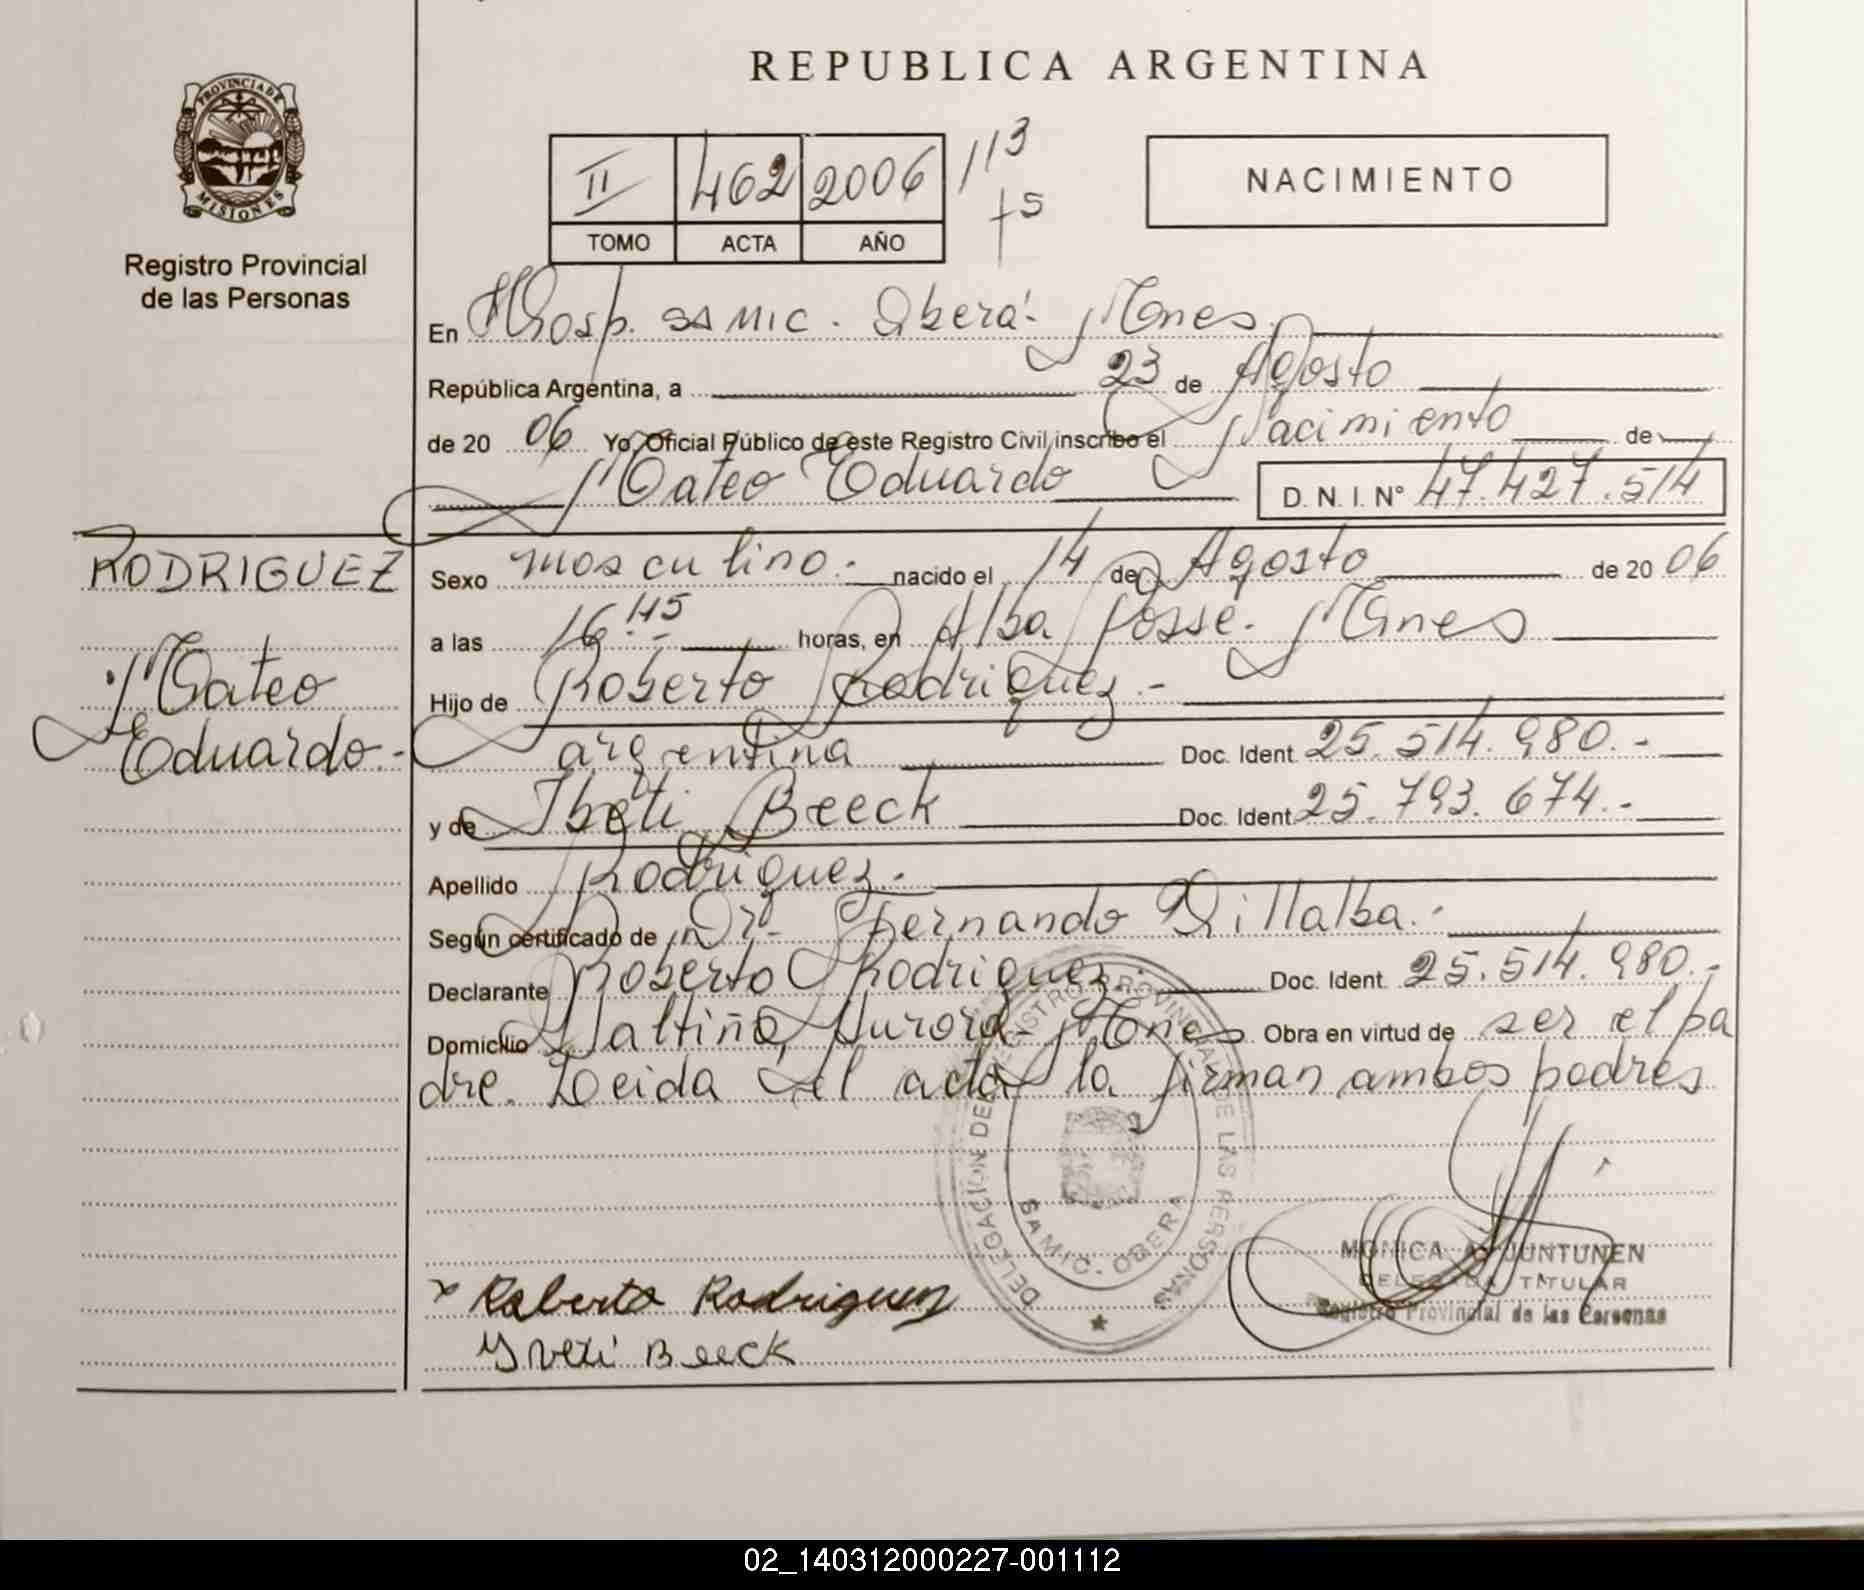 REPUBLICA ARGENTINA
PROVINCIA DE MISIONES
Registro Provincial
de las Personas
II 462 2006 113
TOMO ACTA AÑO
NACIMIENTO
En Hosp. SAMIC. Oberá- Mnes.
República Argentina, a 23 de Agosto
de 20 06 Yo, Oficial Público de este Registro Civil inscribo el Nacimiento de
Mateo Eduardo D. N. I. N° 47.427.514
RODRIGUEZ
Mateo
Eduardo.-
Sexo masculino.- nacido el 14 de Agosto de 20 06
a las 16:45 horas, en Alba Posse. Mnes
Hijo de Roberto Rodriguez.-
argentina Doc. Ident. 25.514.980.-
y de Ibeti Beeck Doc. Ident. 25.793.674.-
Apellido Rodriguez.-
Según certificado de Dr. Fernando Villalba.-
Declarante Roberto Rodriguez. Doc. Ident. 25.514.980.-
Domicilio Aurora- Mnes Obra en virtud de ser el pa
dre. Leida el acta la firman ambos padres
DELEGACION DEL REGISTRO PROVINCIAL DE LAS PERSONAS
SAMIC. OBERA
MONICA A. JUNTUNEN
DELEGADA TITULAR
Registro Provincial de las Personas
x Roberto Rodriguez
Yveti Beeck
02_140312000227-001112